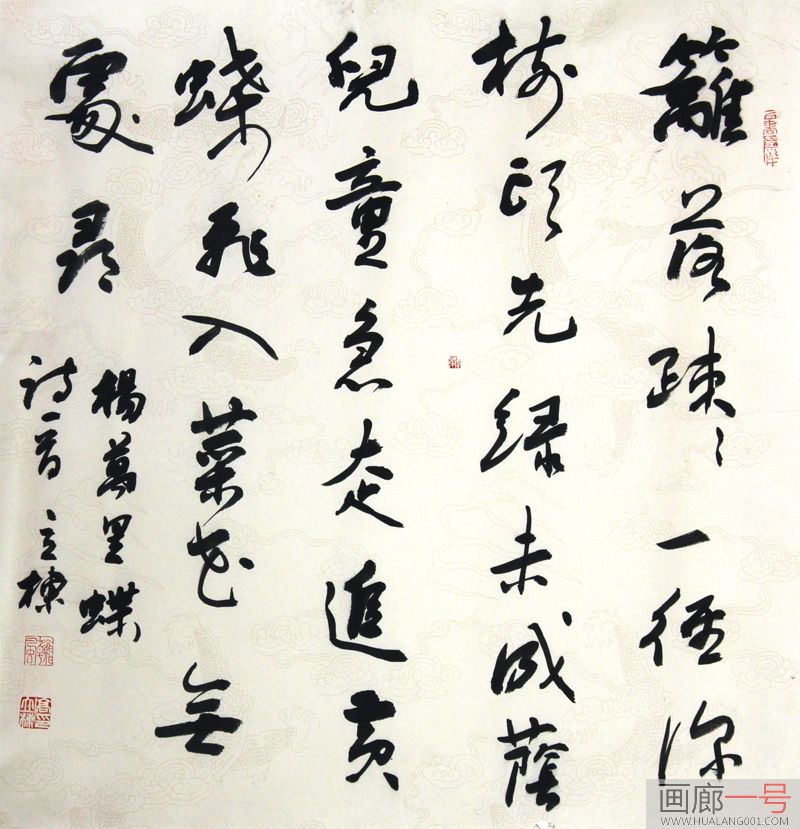 籬落疎〻一徑深
樹頭先緑未成蔭
兒童急走追黄
蝶飛入菜花無
處尋
楊萬里蝶
詩一首立棟
画廊一号
WWW.HUALANG001.COM